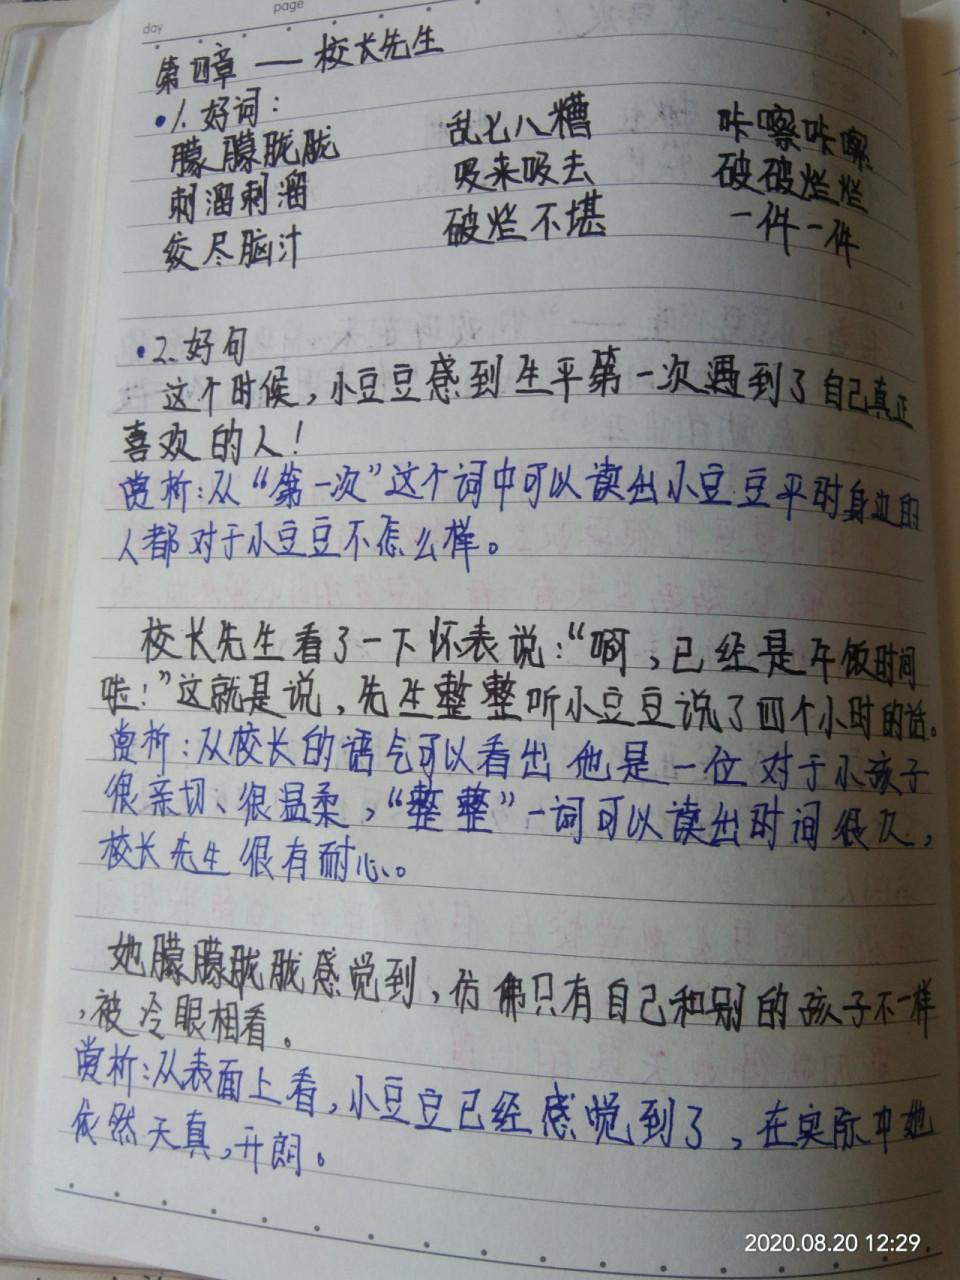 day page
第四章 — 校长先生
•1.好词：
朦朦胧胧 乱七八糟 咔嚓咔嚓
刺溜刺溜 吸来吸去 破破烂烂
绞尽脑汁 破烂不堪 一件一件
•2.好句
这个时候，小豆豆感到生平第一次遇到了自己真正
喜欢的人！
赏析：从“第一次”这个词中可以读出小豆豆平时身边的
人都对于小豆豆不怎么样。
校长先生看了一下怀表说：“啊，已经是午饭时间
啦！”这就是说，先生整整听小豆豆说了四个小时的话。
赏析：从校长的语气可以看出他是一位对于小孩子
很亲切、很温柔，“整整”一词可以读出时间很久，
校长先生很有耐心。
她朦朦胧胧感觉到，仿佛只有自己和别的孩子不一样
，被冷眼相看。
赏析：从表面上看，小豆豆已经感觉到了，在实际中她
依然天真，开朗。
2020.08.20 12:29